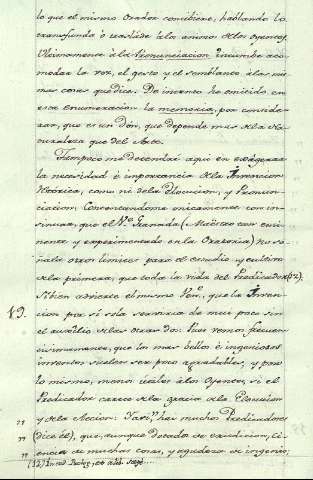 lo que el mismo Orador concibiere, hablando lo
transfunda ò traslade à la animo de los oyentes.
Ultimamente à la Pronunciacion incumbe aco-
modar la voz, el gesto y el semblante à las mis-
mas cosas que dice. De intento he omitido en
esta enumeracion la memoria, por conside-
rar, que es un dòn, que depende mas de la Na-
turaleza que del Arte.
Tampoco me detendrè aqui en exâgerar
la necesidad è importancia de la Invencion
Retòrica, como ni de la Elocucion, y Pronun-
ciacion. Contentandome unicamente con in-
sinuar, que el Ve. Granada (Maestro tan emi-
nente y experimentado en la Oratoria) no se-
ñala otros limites para el estudio y cultivo
de la primera, que toda la vida del Predicador (12).
19. Sibien advierte el mismo Vene. que la Inven-
cion por sì sola serviria de mui poco sin
el auxilio de las otras dos: Pues vemos frecuen-
tisimamente, que las mas bellos è ingeniosos
inventos suelen ser poco agradables, y por
lo mismo, menos utiles à los Oyentes, si el
Predicador carece de la gracia de la Elocucion
y de la Accion:
" (dice èl), que, aunque dotado de erudicion, ci-
" encia de muchas cosas, y agudeza de ingenio,